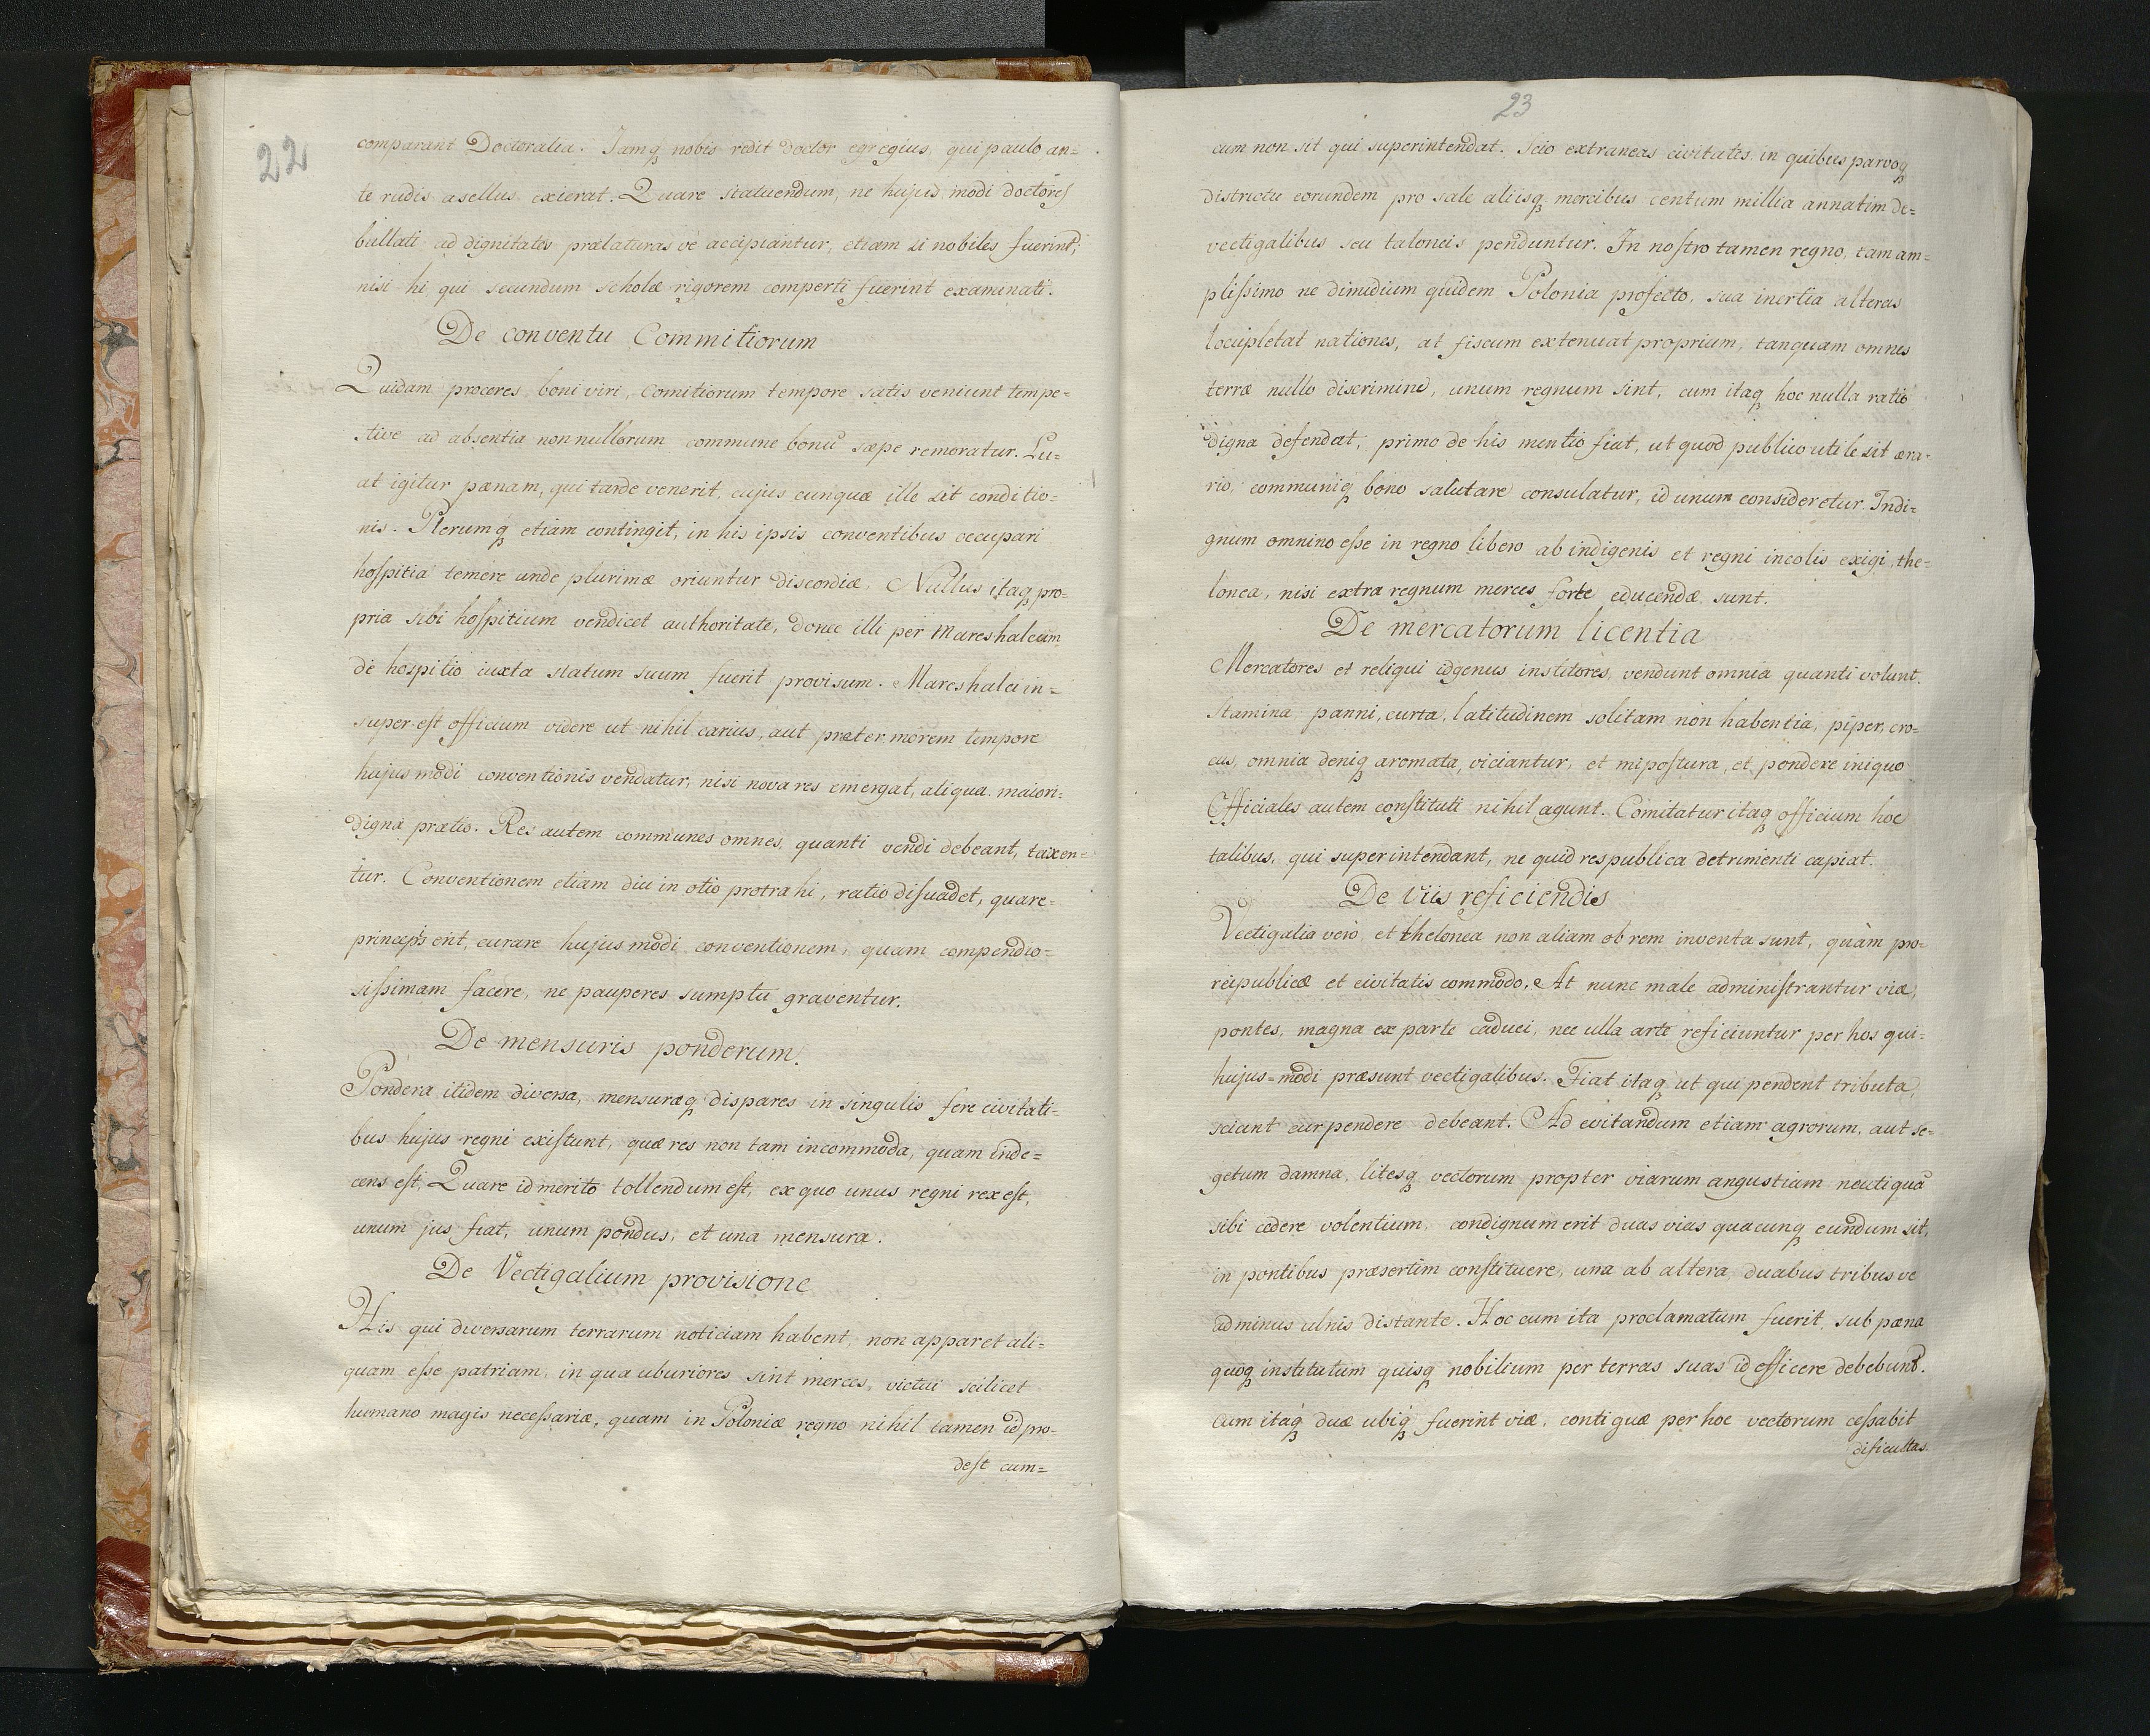 22
comparant Doctoralia. Jamq nobis redit doctor egregius, qui paulo an=
te rudis asellus exierat. Quare statuendum, ne hujus modi doctores
bullati ad dignitates prælaturas ve accipiantur, etiam si nobiles fuerint,
nisi hi qui secundum scholæ rigorem comperti fuerint examinati.
De conventu Commitiorum
Quidam proceres boni viri, Comitiorum tempore satis veniunt tempe=
stive ad absentia nonnullorum commune bonū sæpe remoratur. Lu=
at igitur pænam, qui tarde venerit, cujus cunquæ ille sit conditio=
nis. Plerumq etiam contingit, in his ipsis conventibus occupari
hospitia temere unde plurimæ oriuntur discordiæ. Nullus itaq pro=
pria sibi hospitium vendicet authoritate, donec illi per Mareshalcum
de hospitio iuxta statum suum fuerit provisum. Mareshalci in=
super est officium videre ut nihil carius, aut præter morem tempore
hujus modi conventionis vendatur, nisi nova res emergat, aliqua maiori=
digna prætio. Res autem communes omnes, quanti vendi debeant, taxen=
tur. Conventionem etiam diu in otio protrahi, ratio disuadet, quare=
principis erit, curare hujus modi conventionem, quam compendio=
sissimam facere, ne pauperes sumptu graventur.
De mensuris ponderum.
Pondera itidem diversa, mensuræq dispares in singulis fere civitati=
bus hujus regni existunt, quæ res non tam incommoda, quam inde=
cens est, Quare id merito tollendum est, ex quo unus regni rex est,
unum jus fiat, unum pondus, et una mensura.
De Vectigalium provisione
His qui diversarum terrarum noticiam habent, non apparet ali=
quam esse patriam, in qua uburiores sint merces, victui scilicet
humano magis necessariæ, quam in Poloniæ regno nihil tamen id pro=
dest cum=
23
cum non sit qui superintendat. Scio extraneas civitates in quibus parvoq
districtu eorundem pro sale aliisq mercibus centum millia annatim de=
vectigalibus seu taloneis penduntur. In nostro tamen regno, tam am=
plissimo ne dimidium quidem Polonia profecto, sua inertia alteras
locupletat nationes, at fiscum extenuat proprium, tanquam omnes
terræ nullo discrimine, unum regnum sint, cum itaq hoc nulla ratio
digna defendat, primo de his mentio fiat, ut quod publico utile sit æra=
rio, communiq bono salutare consulatur, id unum consideretur. Indi=
gnum omnino esse in regno libero ab indigenis et regni incolis exigi, the=
lonea, nisi extra regnum merces forte educendæ sunt.
De mercatorum licentia
Mercatores et reliqui idgenus institores, vendunt omnia quanti volunt.
Stamina panni, curta, latitudinem solitam non habentia, piper, cro=
cus, omnia deniq aromata, viciantur, et mipostura, et pondere iniquo
Officiales autem constituti nihil agunt. Comitatur itaq officium hoc
talibus, qui superintendant, ne quid respublica detrimenti capiat.
De viis reficiendis
Vectigalia vero et thelonea non aliam ob rem inventa sunt, quàm pro=
reipublicæ et civitatis commodo. At nunc male administrantur viæ,
pontes, magna ex parte caduci, nec ulla arte reficiuntur per hos qui=
hujus=modi præsunt vectigalibus. Fiat itaq ut qui pendent tributa,
sciant cur pendere debeant. Ad evitandum etiam agrorum, aut se=
getum damna, litesq vectorum propter viarum angustiam neutiquā
sibi cedere volentium, condignum erit duas vias quacunq eundum sit,
in pontibus præsertim constituere, una ab altera duabus tribus ve
ad minus ulnis distante. Hoc cum ita proclamatum fuerit, sub pæna
quoq institutum quisq nobilium per terras suas id efficere debebunt.
Cum itaq duæ ubiq fuerint viæ, contiguæ per hoc vectorum cessabit
dificultas